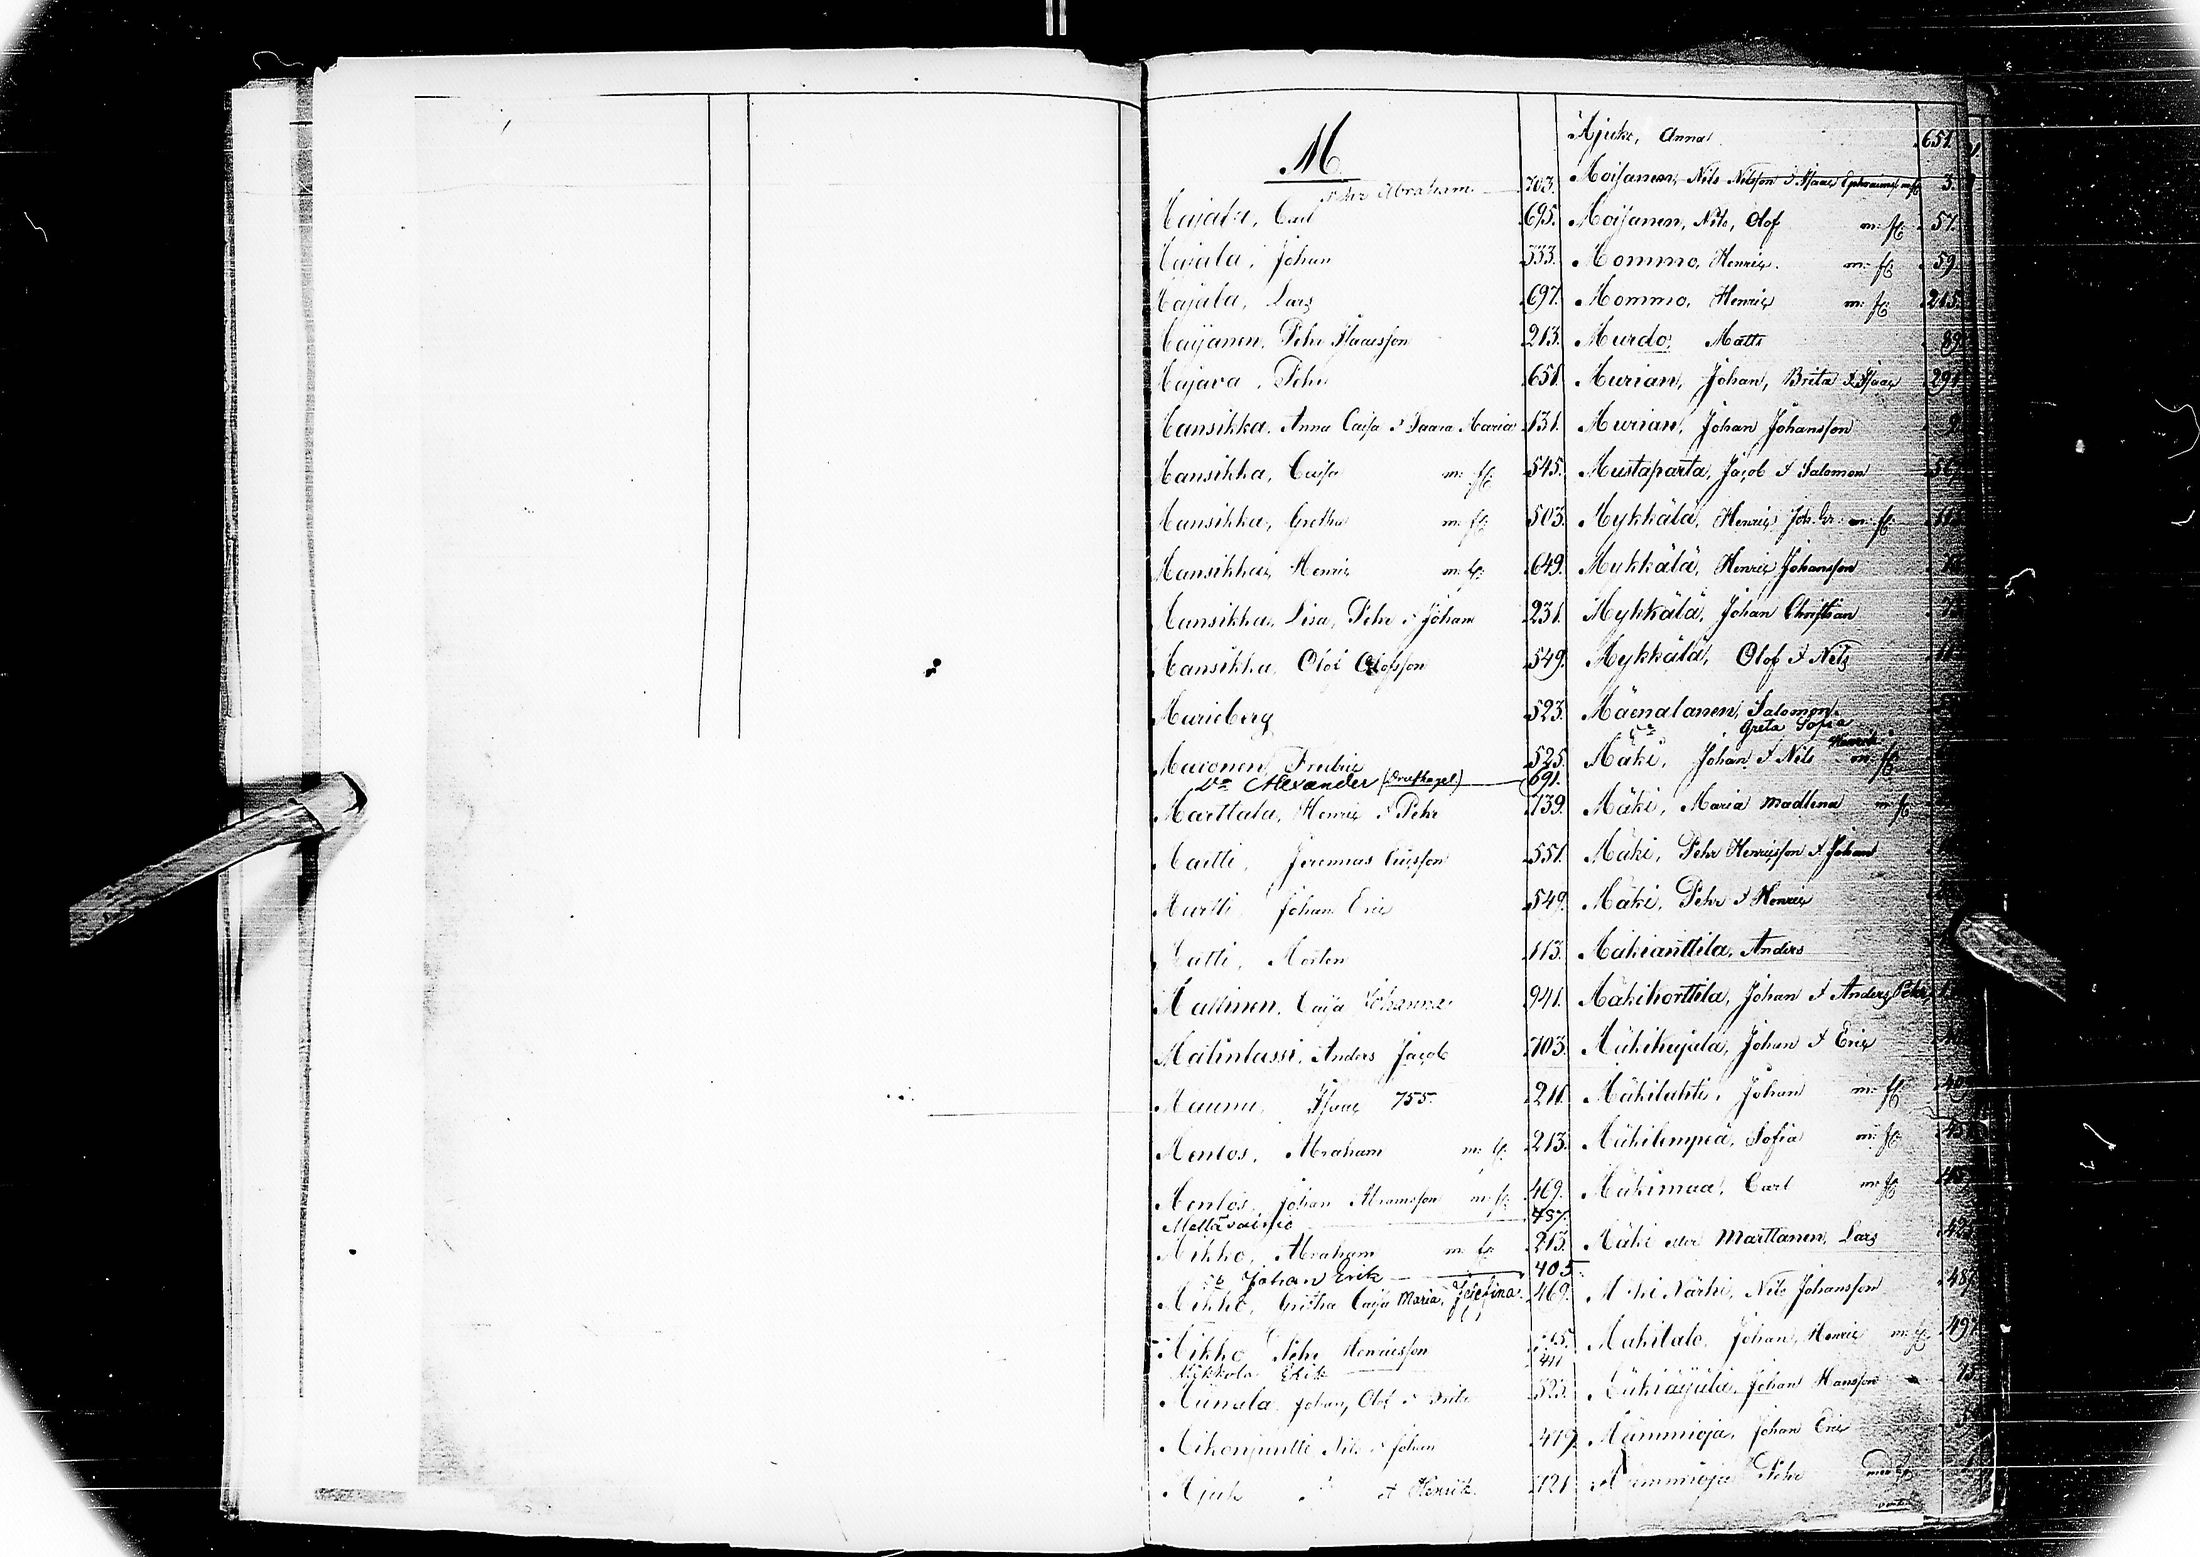 M
Pehr Abraham 703.
Majala, Carl 695.
Majala, Johan 333.
Majala, Lars 697.
Maijanen, Pehr Isaacsson 213.
Majava, Pehr 651.
Mansikka, Anna Caisa & Saara Maria 131.
Mansikka, Caisa m: fl: 545.
Mansikka, Gretha m: fl: 503.
Mansikka, Henric m: fl: 649.
Mansikka, Lisa, Pehr & Johan 231.
Mansikka, Olof Olofsson 549.
Marieberg 523.
Maionen, Fredric 525.
Do Alexander 691.
Marttala, Henric & Pehr 139.
Martti, Jeremias 551.
Martti, Johan Eric 549.
Matti, Morten 113.
Mattinen, Caisa Johanna 941.
Matinlassi, Anders Jacob 703.
Maunu, Isaac 755. 211.
Mentos, Abraham m: fl: 213.
Mentos, Johan Abramsson m: fl: 469.
Mettävainio 437.
Mikko, Abraham m: fl: 213.
Johan Erik 405.
Mikko, Gretha Caisa Maria, Josefina 469.
Mikko Pehr Henricsson
Mykkola Erik
Miinala, Johan, Olof & 523.
Mikonjuntti Nils & Johan 479.
& Henrik. 721
Mjuke, Anna 651
Moijanen, Nils Nilsson & Isaac Ephraims: m: fl: 3.
Moijanen, Nils, Olof m: fl: 57.
Mommo, Henric m: fl: 59.
Mommo, Henric m: fl: 215.
Murdo, Matts 89.
Murian, Johan, Brita & Isaac 291
Murian, Johan Johansson
Mustaparta, Jacob & Salomon
Mykkälä, Henric Joh. m: fl:
Mykkälä, Henric Johansson
Mykkälä, Johan Christian
Mykkälä, Olof & Nils
Mäenalanen, Salomon
Greta Sofia
Mäki, Johan & Nils Henrik m: fl:
Mäki, Maria Madlena m: fl:
Mäki, Pehr Henricsson & Johan
Mäki, Pehr & Henric
Mäkianttila, Anders
Mäkikorttila, Johan & Anders, Pehr
Mäkikujala, Johan & Eric
Mäkilahti, Johan m: fl:
Mäkilempeä, Sofia m: fl:
Mäkimaa, Carl m: fl:
Mäki eller Marttanen, Lars
Mäki Närhi, Nils Johansson 481
Mäkitalo, Johan, Henric m: fl: 497
Mäkiäijälä, Johan Hansson
Mämmioja, Johan Eric
Mämmioja Pehr